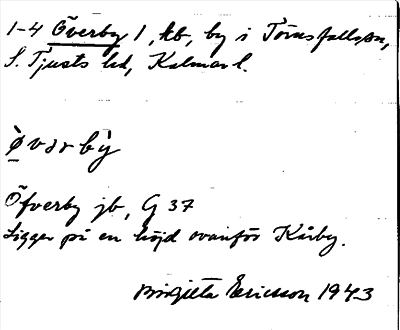 1-4 Överby 1, Ab, by i Törnsfallssn,
S. Tjusts hd, Kalmar l.
Ö̀vərbỳ
Öfverby jb, G 37
Ligger på en höjd ovanför Kårby.
Birgitta Ericsson 1943